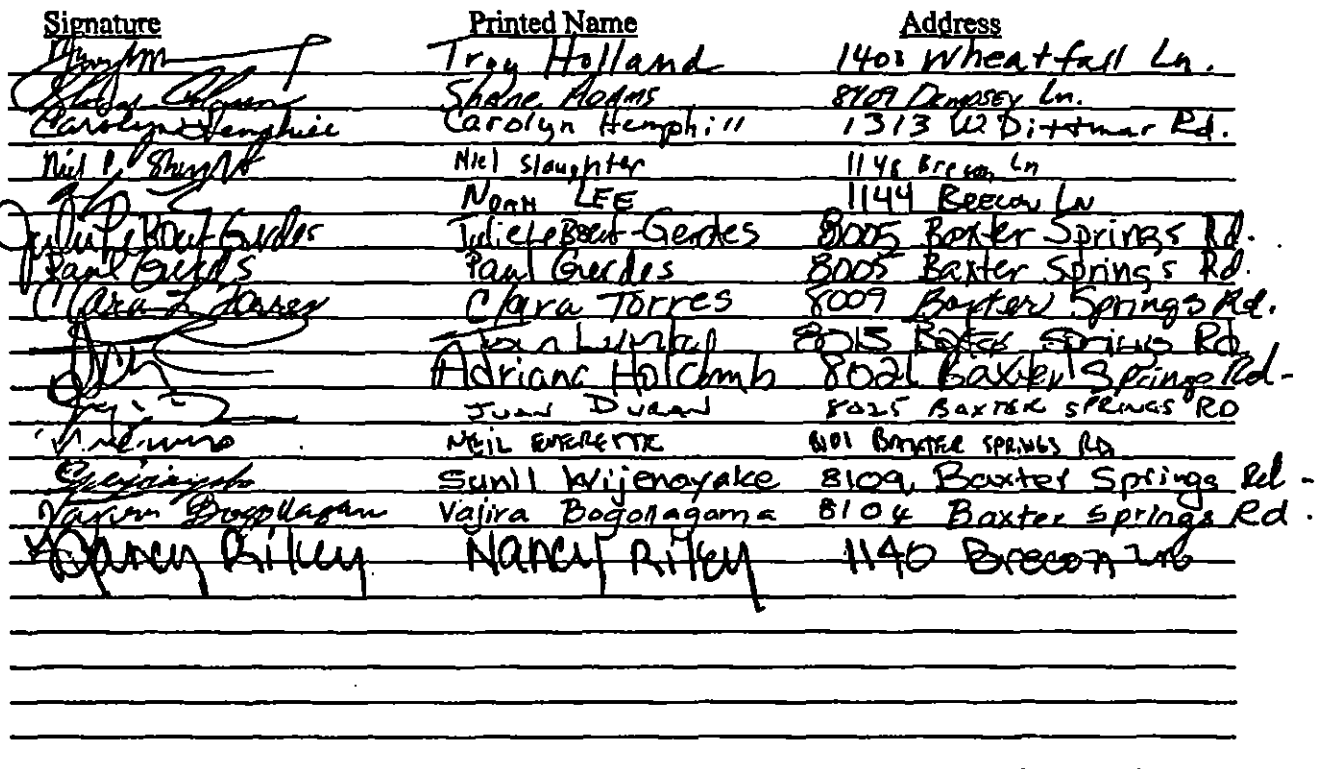 Signature Printed Name Address
Troy Holland 1408 Wheatfall Ln.
Shane Adams 8409 Dempsey Ln.
Carolyn Hemphill Carolyn Hemphill 1313 W Dittmar Rd.
Niel Slaughter 1148 Brecon Ln
Noah LEE 1144 Brecon Ln
Paul Gerdes Paul Gerdes 8005 Baxter Springs Rd.
Clara L Torres Clara Torres 8009 Baxter Springs Rd.
8013 Baxter Springs Rd
Adriana Holcomb 8021 Baxter Springs Rd.
JUAN DURAN 8025 BAXTER SPRINGS RD
NEIL EVERETTE 8101 BAXTER SPRINGS RD
Sunil Wijenayake 8109 Baxter Springs Rd.
Vajira Bogollagama Vajira Bogollagama 8104 Baxter Springs Rd.
Nancy Riley Nancy Riley 1140 Brecon Ln